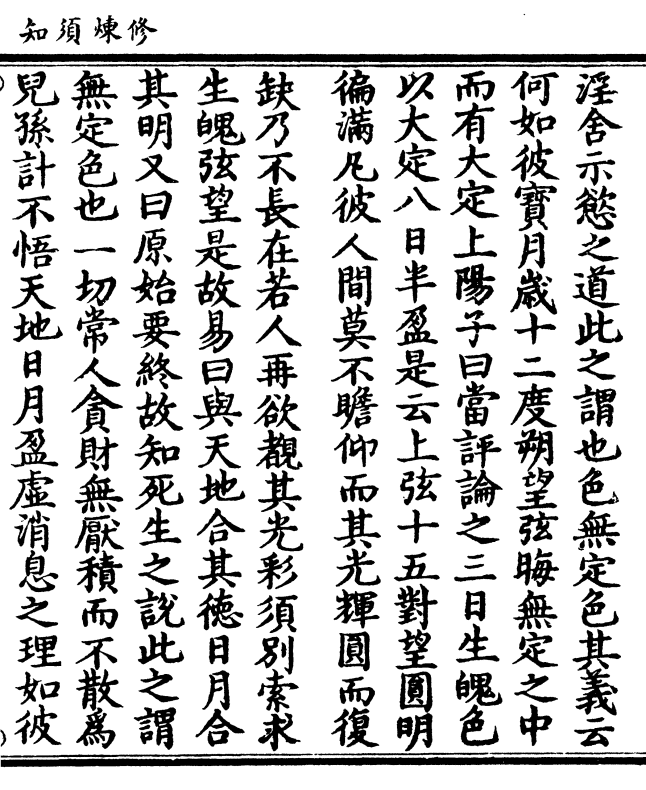 修煉須知
淫舍示慾之道此之謂也色無定色其義云
何如彼寶月歲十二度朔望弦晦無定之中
而有大定上陽子曰當評論之三日生魄色
以大定八日半盈是云上弦十五對望圓明
徧滿凡彼人間莫不瞻仰而其光輝圓而復
缺乃不長在若人再欲覩其光彩須別索求
生魄弦望是故易曰與天地合其德日月合
其明又曰原始要終故知死生之說此之謂
無定色也一切常人貪財無厭積而不散為
兒孫計不悟天地日月盈虛消息之理如彼